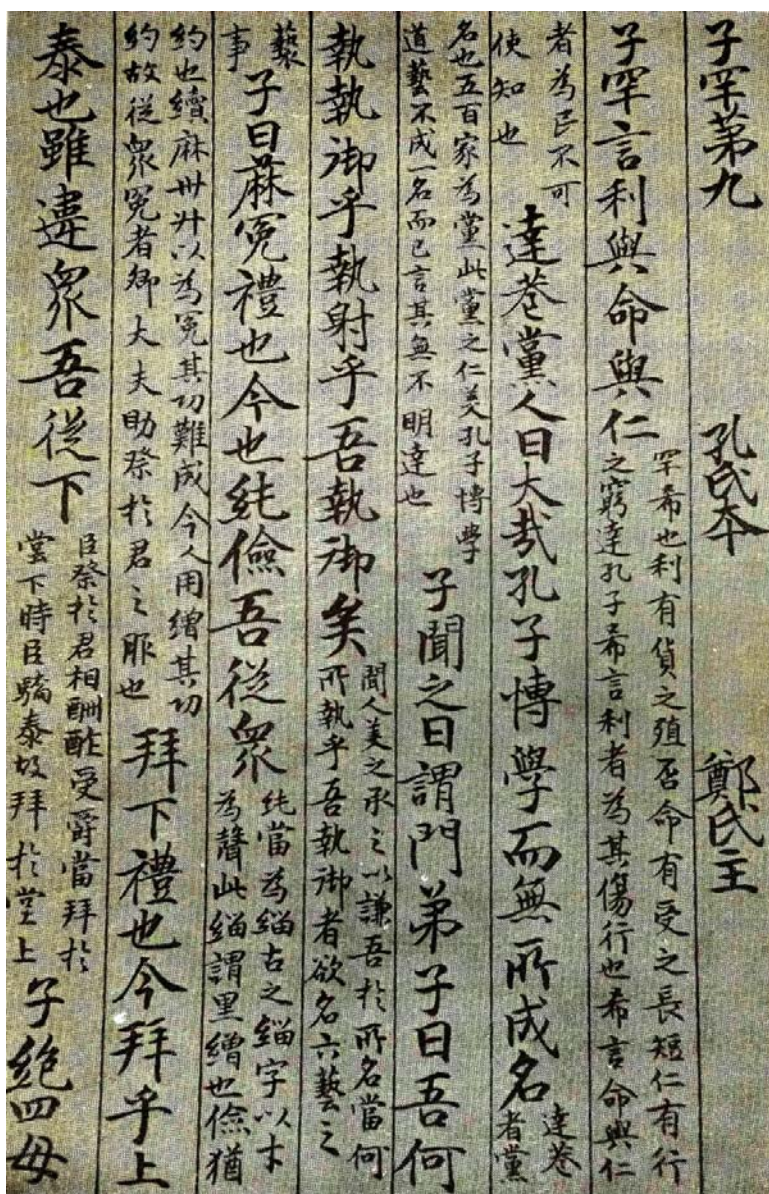 子罕第九 孔氏本 鄭氏主
子罕言利與命與仁 罕希也利有貨之殖否命有受之長短仁有行之窮達孔子希言利者為其傷行也希言命與仁
者為民不可使知也 達巷黨人曰大哉孔子博學而無所成名 達巷者黨
名也五百家為黨此黨之仁美孔子博學道藝不成一名而已言其無不明達也 子聞之曰謂門弟子曰吾何
執執御乎執射乎吾執御矣 聞人美之承之以謙吾於所名當何所執乎吾執御者欲名六藝之
藝事 子曰蔴冕禮也今也純儉吾從衆 純當為緇古之緇字以才為聲此緇謂黑繒也儉猶
約也績麻卅升以為冕其功難成今人用繒其功約故從衆冕者卿大夫助祭於君之服也 拜下禮也今拜乎上
泰也雖違衆吾從下 臣祭於君相酬酢受爵當拜於堂下時臣驕泰故拜於堂上 子絶四毋